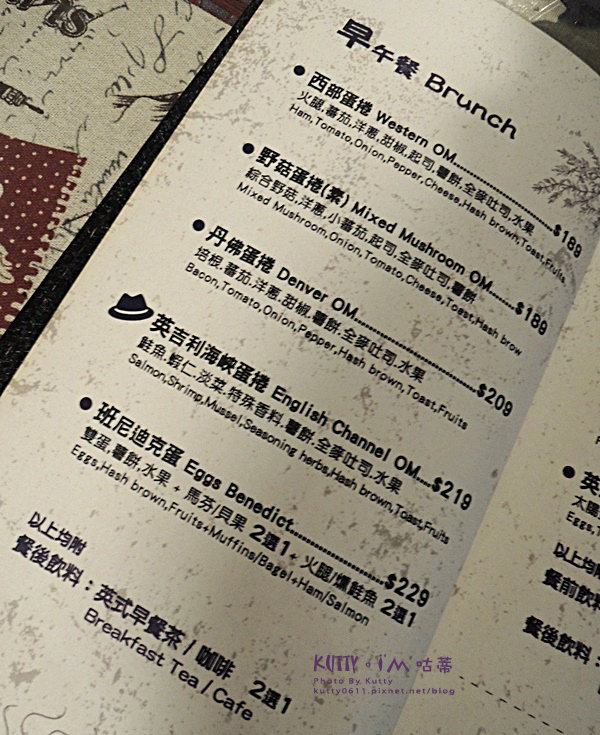 早午餐 Brunch
西部蛋捲 Western OM....................$189
火腿,蕃茄,洋蔥,甜椒,起司,薯餅,全麥吐司,水果
Ham,Tomato,Onion,Pepper,Cheese,Hash brown,Toast,Fruits
野菇蛋捲(素) Mixed Mushroom OM......$189
綜合野菇,洋蔥,小蕃茄,起司,全麥吐司,薯餅
Mixed Mushroom,Onion,Tomato,Cheese,Toast,Hash brow
丹佛蛋捲 Denver OM........................$209
培根,蕃茄,洋蔥,甜椒,薯餅,全麥吐司,水果
Bacon,Tomato,Onion,Pepper,Hash brown,Toast,Fruits
英吉利海峽蛋捲 English Channel OM....$219
鮭魚,蝦仁,淡菜,特殊香料,薯餅,全麥吐司,水果
Salmon,Shrimp,Mussel,Seasoning herbs,Hash brown,Toast,Fruits
班尼迪克蛋 Eggs Benedict....................$229
雙蛋,薯餅,水果 + 馬芬/貝果 2選1+ 火腿/燻鮭魚 2選1
Eggs,Hash brown,Fruits+Muffins/Bagel+Ham/Salmon
以上均附
餐後飲料：英式早餐茶 / 咖啡 2選1
Breakfast Tea / Cafe
英
太陽
Eggs,T
以上均附
餐前飲料
餐後飲料：
KUTTY。I'M 咕蒂
Photo By Kutty
kutty0611.pixnet.net/blog